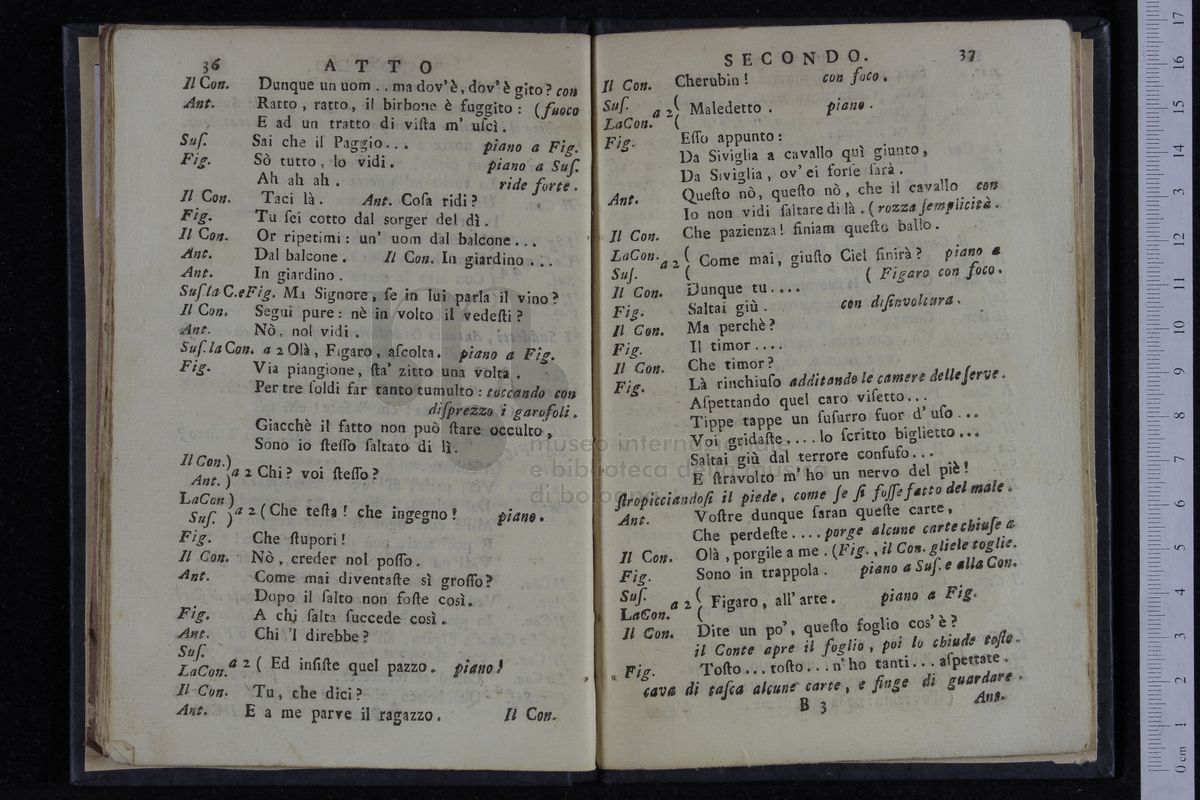 36 ATTO
Il Con. Dunque un uom . . ma dov'è, dov'è gito? con
Ant. Ratto, ratto, il birbone è fuggito: (fuoco
E ad un tratto di viſta m' uſcì.
Suſ. Sai che il Paggio... piano a Fig.
Fig. Sò tutto, lo vidi. piano a Suſ.
Ah ah ah. ride forte.
Il Con. Taci là. Ant. Coſa ridi?
Fig. Tu ſei cotto dal sorger del dì.
Il Con. Or ripetimi: un' uom dal balcone...
Ant. Dal balcone. Il Con. In giardino...
Ant. In giardino.
Suſ.la C.eFig. Ma Signore, ſe in lui parla il vino?
Il Con. Segui pure: nè in volto il vedeſti?
Ant. Nò, nol vidi.
Suſ.la Con. a 2 Olà, Figaro, aſcolta. piano a Fig.
Fig. Via piangione, ſta' zitto una volta.
Per tre ſoldi far tanto tumulto: toccando con
diſprezzo i garofoli.
Giacchè il fatto non può ſtare occulto,
Sono io ſteſſo ſaltato di lì.
Il Con.)
Ant. ) a 2 Chi? voi ſteſſo?
LaCon )
Suſ. ) a 2 (Che teſta! che ingegno! piano.
Fig. Che ſtupori!
Il Con. Nò, creder nol poſſo.
Ant. Come mai diventaſte sì groſſo?
Dopo il ſalto non foſte così.
Fig. A chi ſalta ſuccede così.
Ant. Chi 'l direbbe?
Suſ.
LaCon. a 2 ( Ed inſiſte quel pazzo. piano)
Il Con. Tu, che dici?
Ant. E a me parve il ragazzo. Il Con.
SECONDO. 37
Il Con. Cherubin! con foco.
Suſ. a 2 ( Maledetto. piano.
LaCon. (
Fig. Eſſo appunto:
Da Siviglia a cavallo quì giunto,
Da Siviglia, ov' ei forſe ſarà.
Ant. Queſto nò, queſto nò, che il cavallo con
Io non vidi ſaltare di là. (rozza ſemplicità.
Il Con. Che pazienza! finiam queſto ballo.
LaCon. a 2 ( Come mai, giuſto Ciel finirà? piano a
Suſ. ( ( Figaro con foco.
Il Con. Dunque tu....
Fig. Saltai giù. con diſinvoltura.
Il Con. Ma perchè?
Fig. Il timor....
Il Con. Che timor?
Fig. Là rinchiuſo additando le camere delle ſerve.
Aſpettando quel caro viſetto...
Tippe tappe un ſuſurro fuor d' uſo...
Voi gridaſte.... lo ſcritto biglietto...
Saltai giù dal terrore confuſo...
E ſtravolto m' ho un nervo del piè!
ſtropicciandoſi il piede, come ſe ſi foſſe fatto del male.
Ant. Voſtre dunque ſaran queſte carte,
Che perdeſte.... porge alcune carte chiuſe a
Il Con. Olà, porgile a me. (Fig., il Con. gliele toglie.
Fig. Sono in trappola. piano a Suſ. e alla Con.
Suſ. a 2 ( Figaro, all' arte. piano a Fig.
LaCon. (
Il Con. Dite un po', queſto foglio cos' è?
il Conte apre il foglio, poi lo chiude toſto.
Fig. Toſto... toſto... n' ho tanti... aſpettate.
cava di taſca alcune carte, e finge di guardare.
B 3 Ant.
museo internazionale
e biblioteca della musica
di bologna